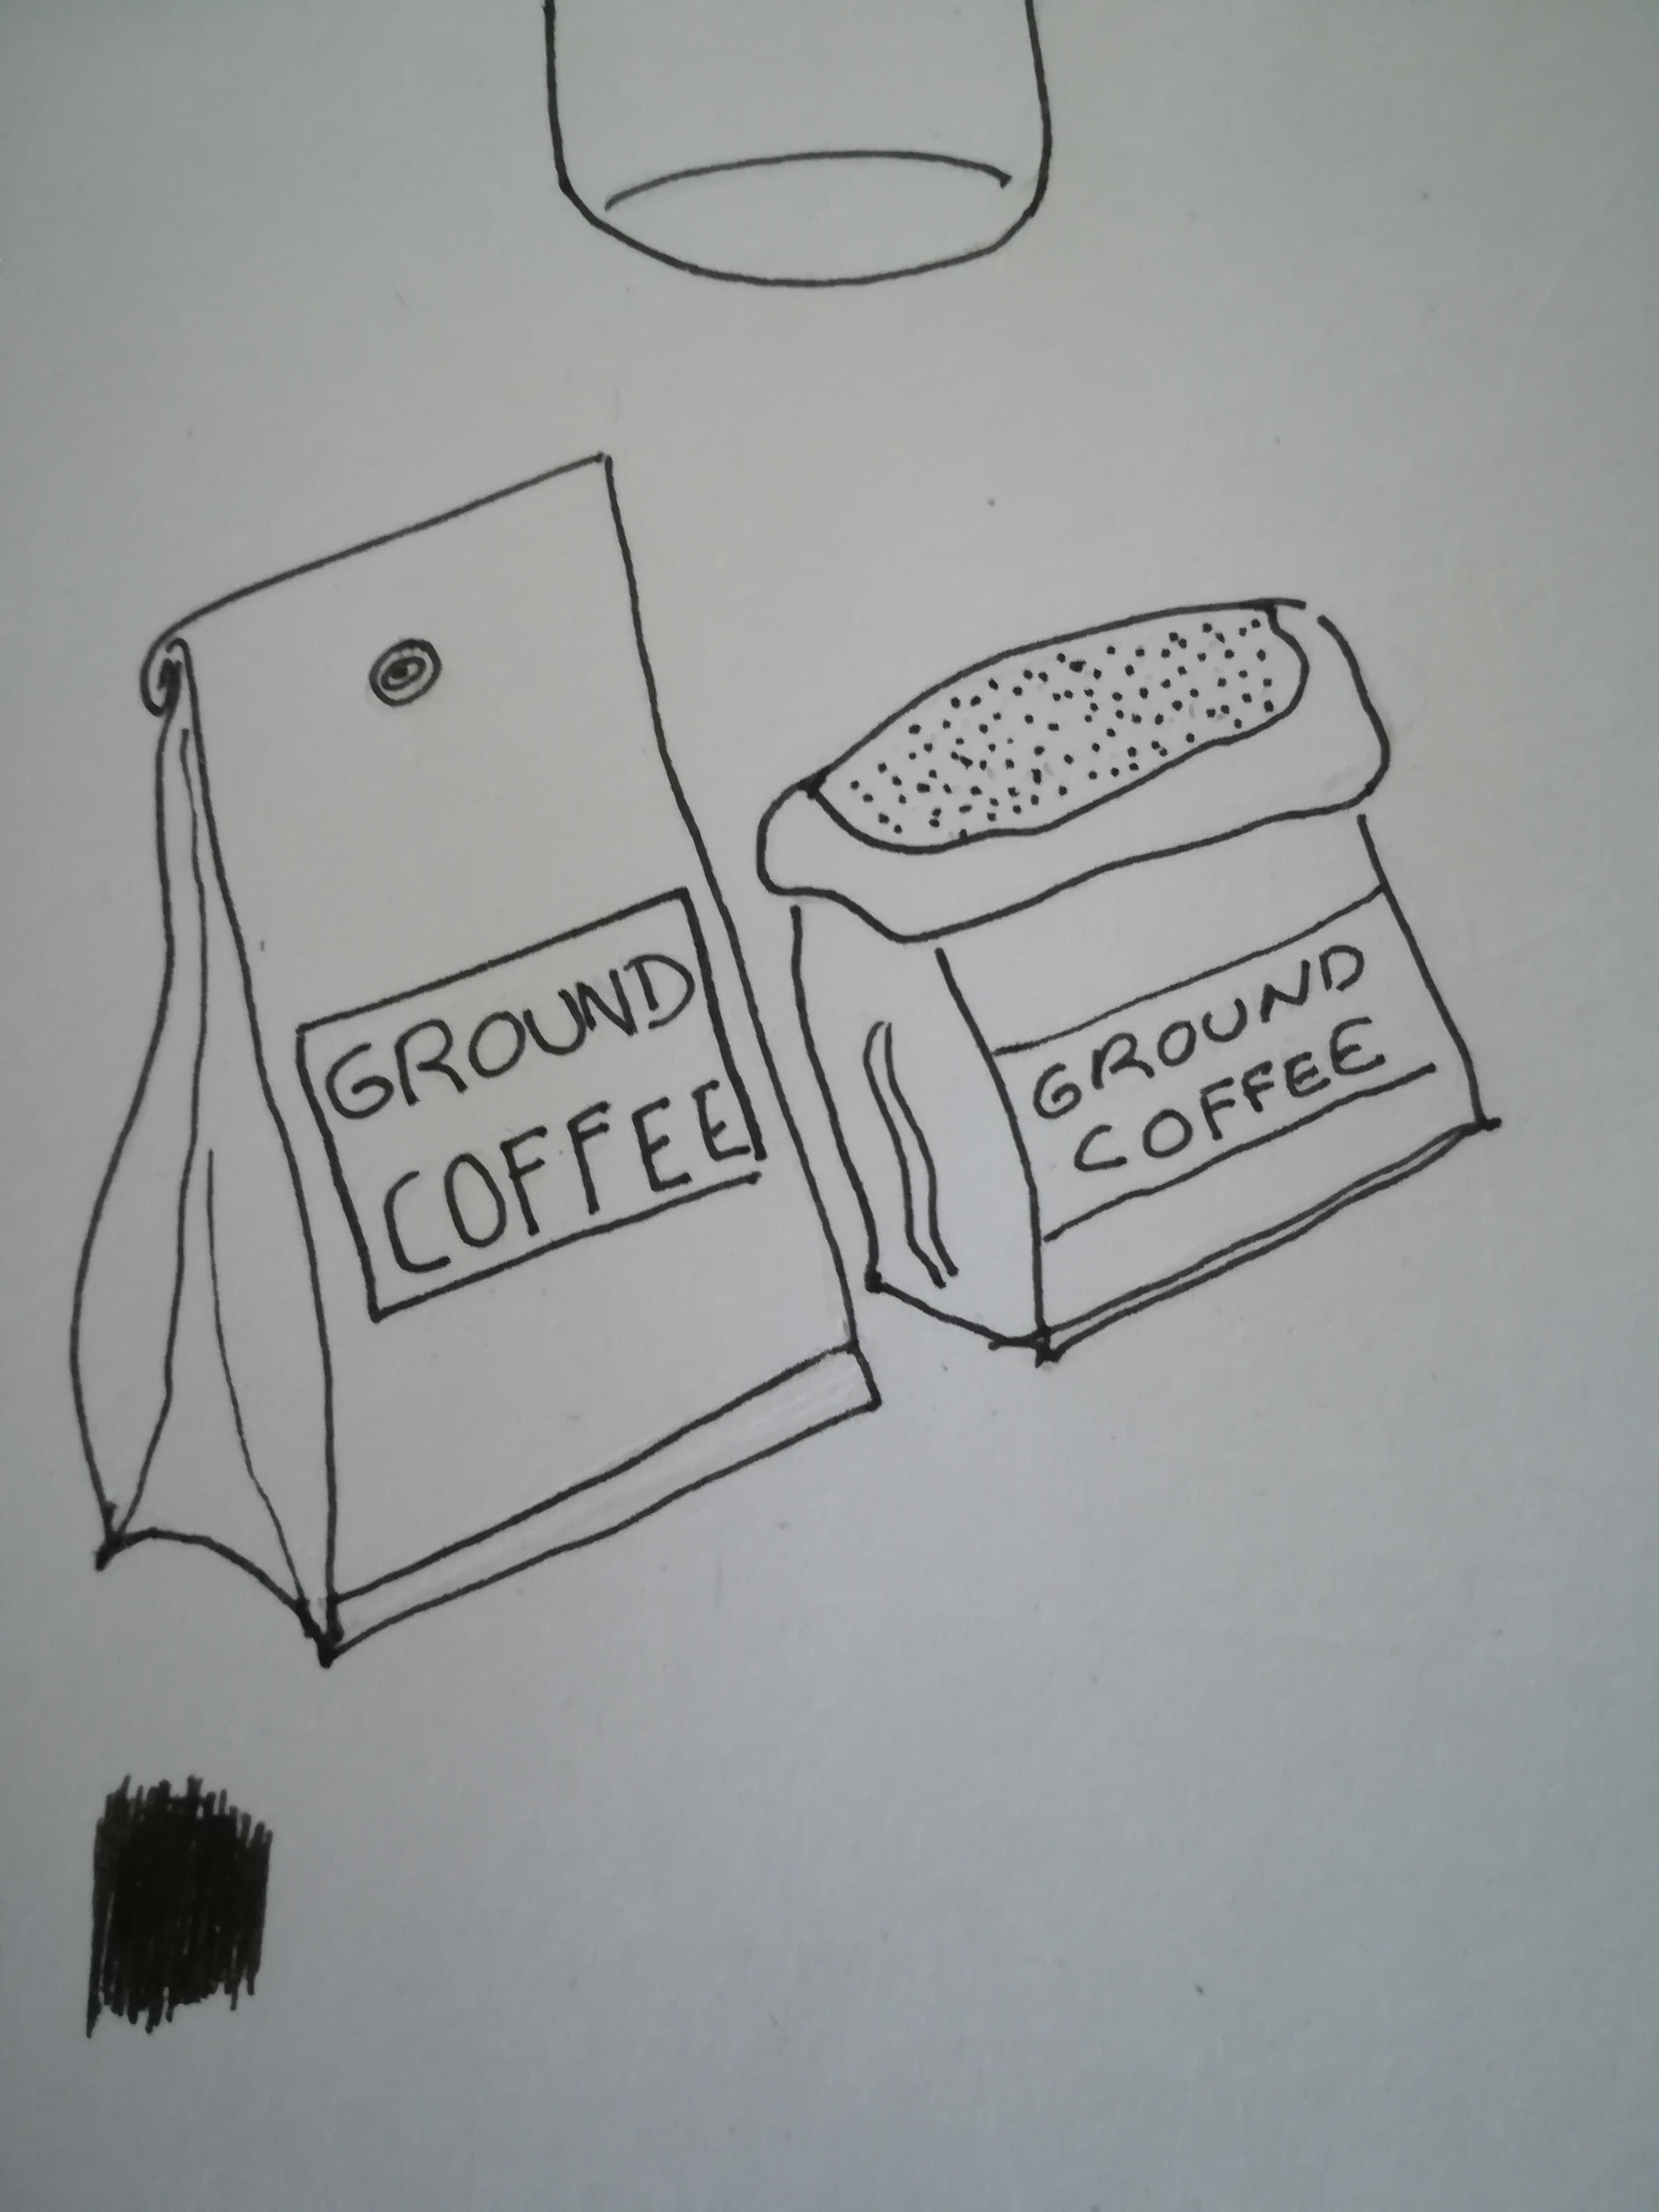 GROUND
COFFEE
GROUND
COFFEE